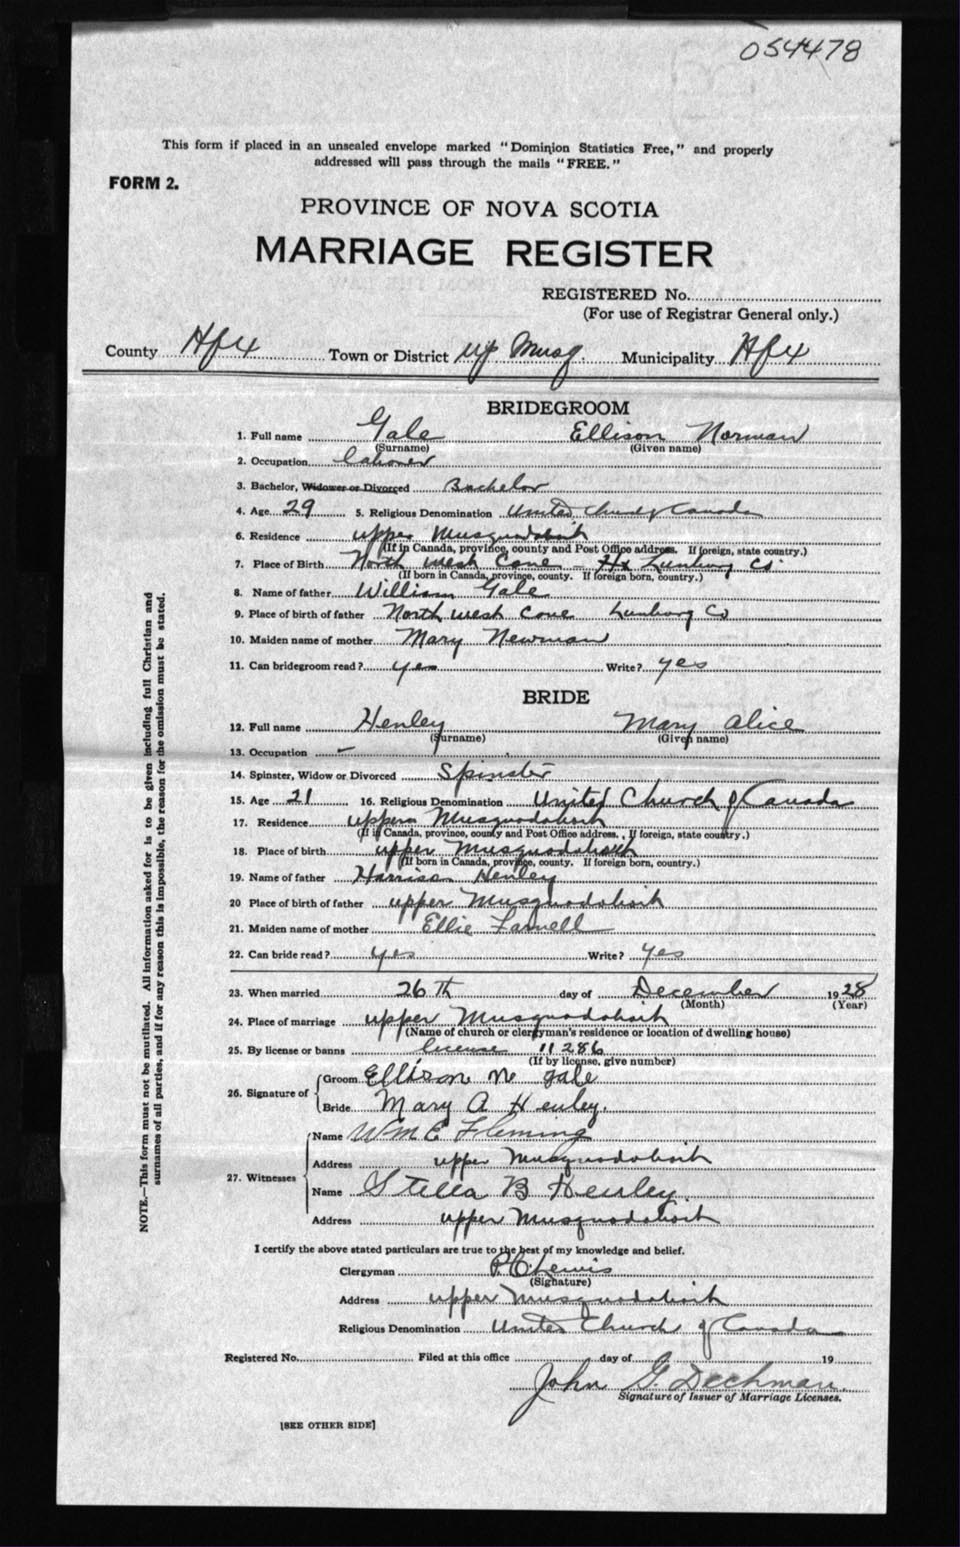 054478
This form if placed in an unsealed envelope marked "Dominion Statistics Free," and properly
addressed will pass through the mails "FREE."
FORM 2.
PROVINCE OF NOVA SCOTIA
MARRIAGE REGISTER
REGISTERED No.
(For use of Registrar General only.)
County Hfx Town or District up Musq. Municipality Hfx
BRIDEGROOM
1. Full name Gale Ellison Norman
(Surname) (Given name)
2. Occupation Laborer
3. Bachelor, Widower or Divorced Bachelor
4. Age 29 5. Religious Denomination United Church of Canada
6. Residence upper Musquodoboit
(If in Canada, province, county and Post Office address. If foreign, state country.)
7. Place of Birth North west Cove - Hx Lunburg Co.
(If born in Canada, province, county. If foreign born, country.)
8. Name of father William Gale
9. Place of birth of father North west Cove Lunburg Co
10. Maiden name of mother Mary Newman
11. Can bridegroom read? yes Write? yes
BRIDE
12. Full name Henley Mary Alice
(Surname) (Given name)
13. Occupation -
14. Spinster, Widow or Divorced Spinster
15. Age 21 16. Religious Denomination United Church of Canada
17. Residence upper Musquodoboit
(If in Canada, province, county and Post Office address., If foreign, state country.)
18. Place of birth upper Musquodoboit
(If born in Canada, province, county. If foreign born, country.)
19. Name of father Harrison Henley
20 Place of birth of father upper Musquodoboit
21. Maiden name of mother Ellie Farnell
22. Can bride read? yes Write? yes
23. When married 26th day of December 1928
(Month) (Year)
24. Place of marriage upper Musquodoboit
(Name of church or clergyman's residence or location of dwelling house)
25. By license or banns license 11286
(If by license, give number)
26. Signature of Groom Ellison N Gale
Bride Mary A Henley.
27. Witnesses Name Wm E Fleming
Address upper Musquodoboit
Name Stella B Henley.
Address upper Musquodoboit
I certify the above stated particulars are true to the best of my knowledge and belief.
Clergyman P.C. Lewis
(Signature)
Address upper Musquodoboit
Religious Denomination United Church of Canada
Registered No. Filed at this office day of 19
John G. Dechman.
Signature of Issuer of Marriage Licenses.
[SEE OTHER SIDE]
NOTE.—This form must not be mutilated. All information asked for is to be given including full Christian and
surnames of all parties, and if for any reason this is impossible, the reason for the omission must be stated.